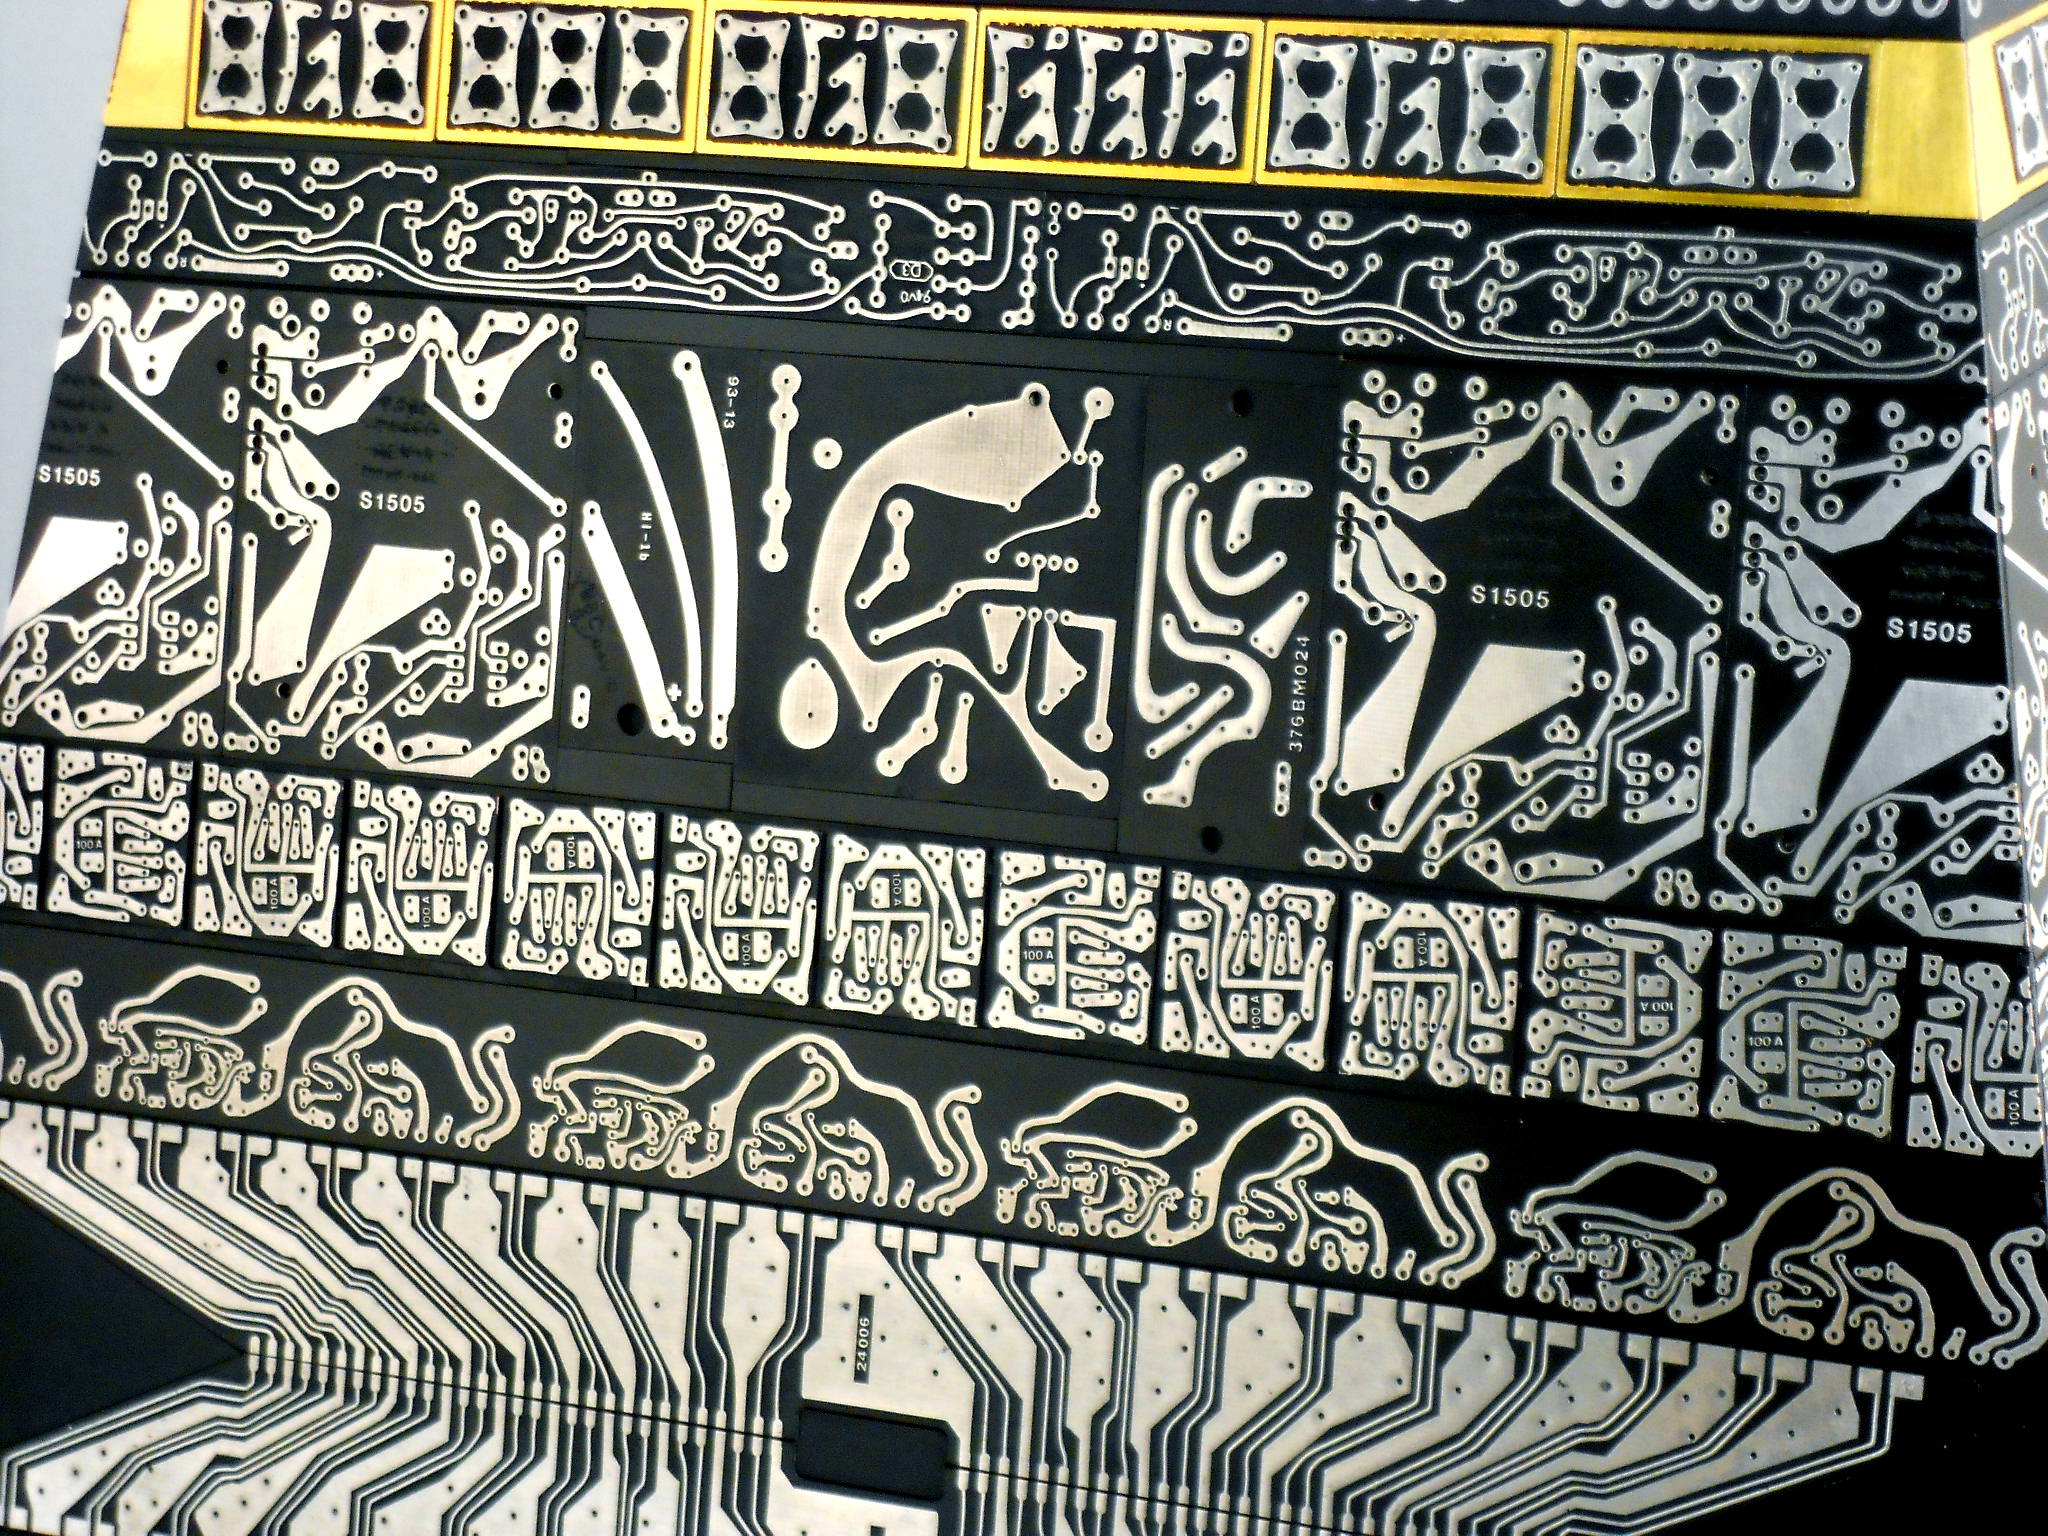 R
+
D3
94V0
R
+
93-13
S1505
S1505
HI-16
+
S1505
S1505
376BM024
100 A
100 A
100 A
100 A
100 A
100 A
100 A
100 A
100 A
100 A
100 A
100 A
24006